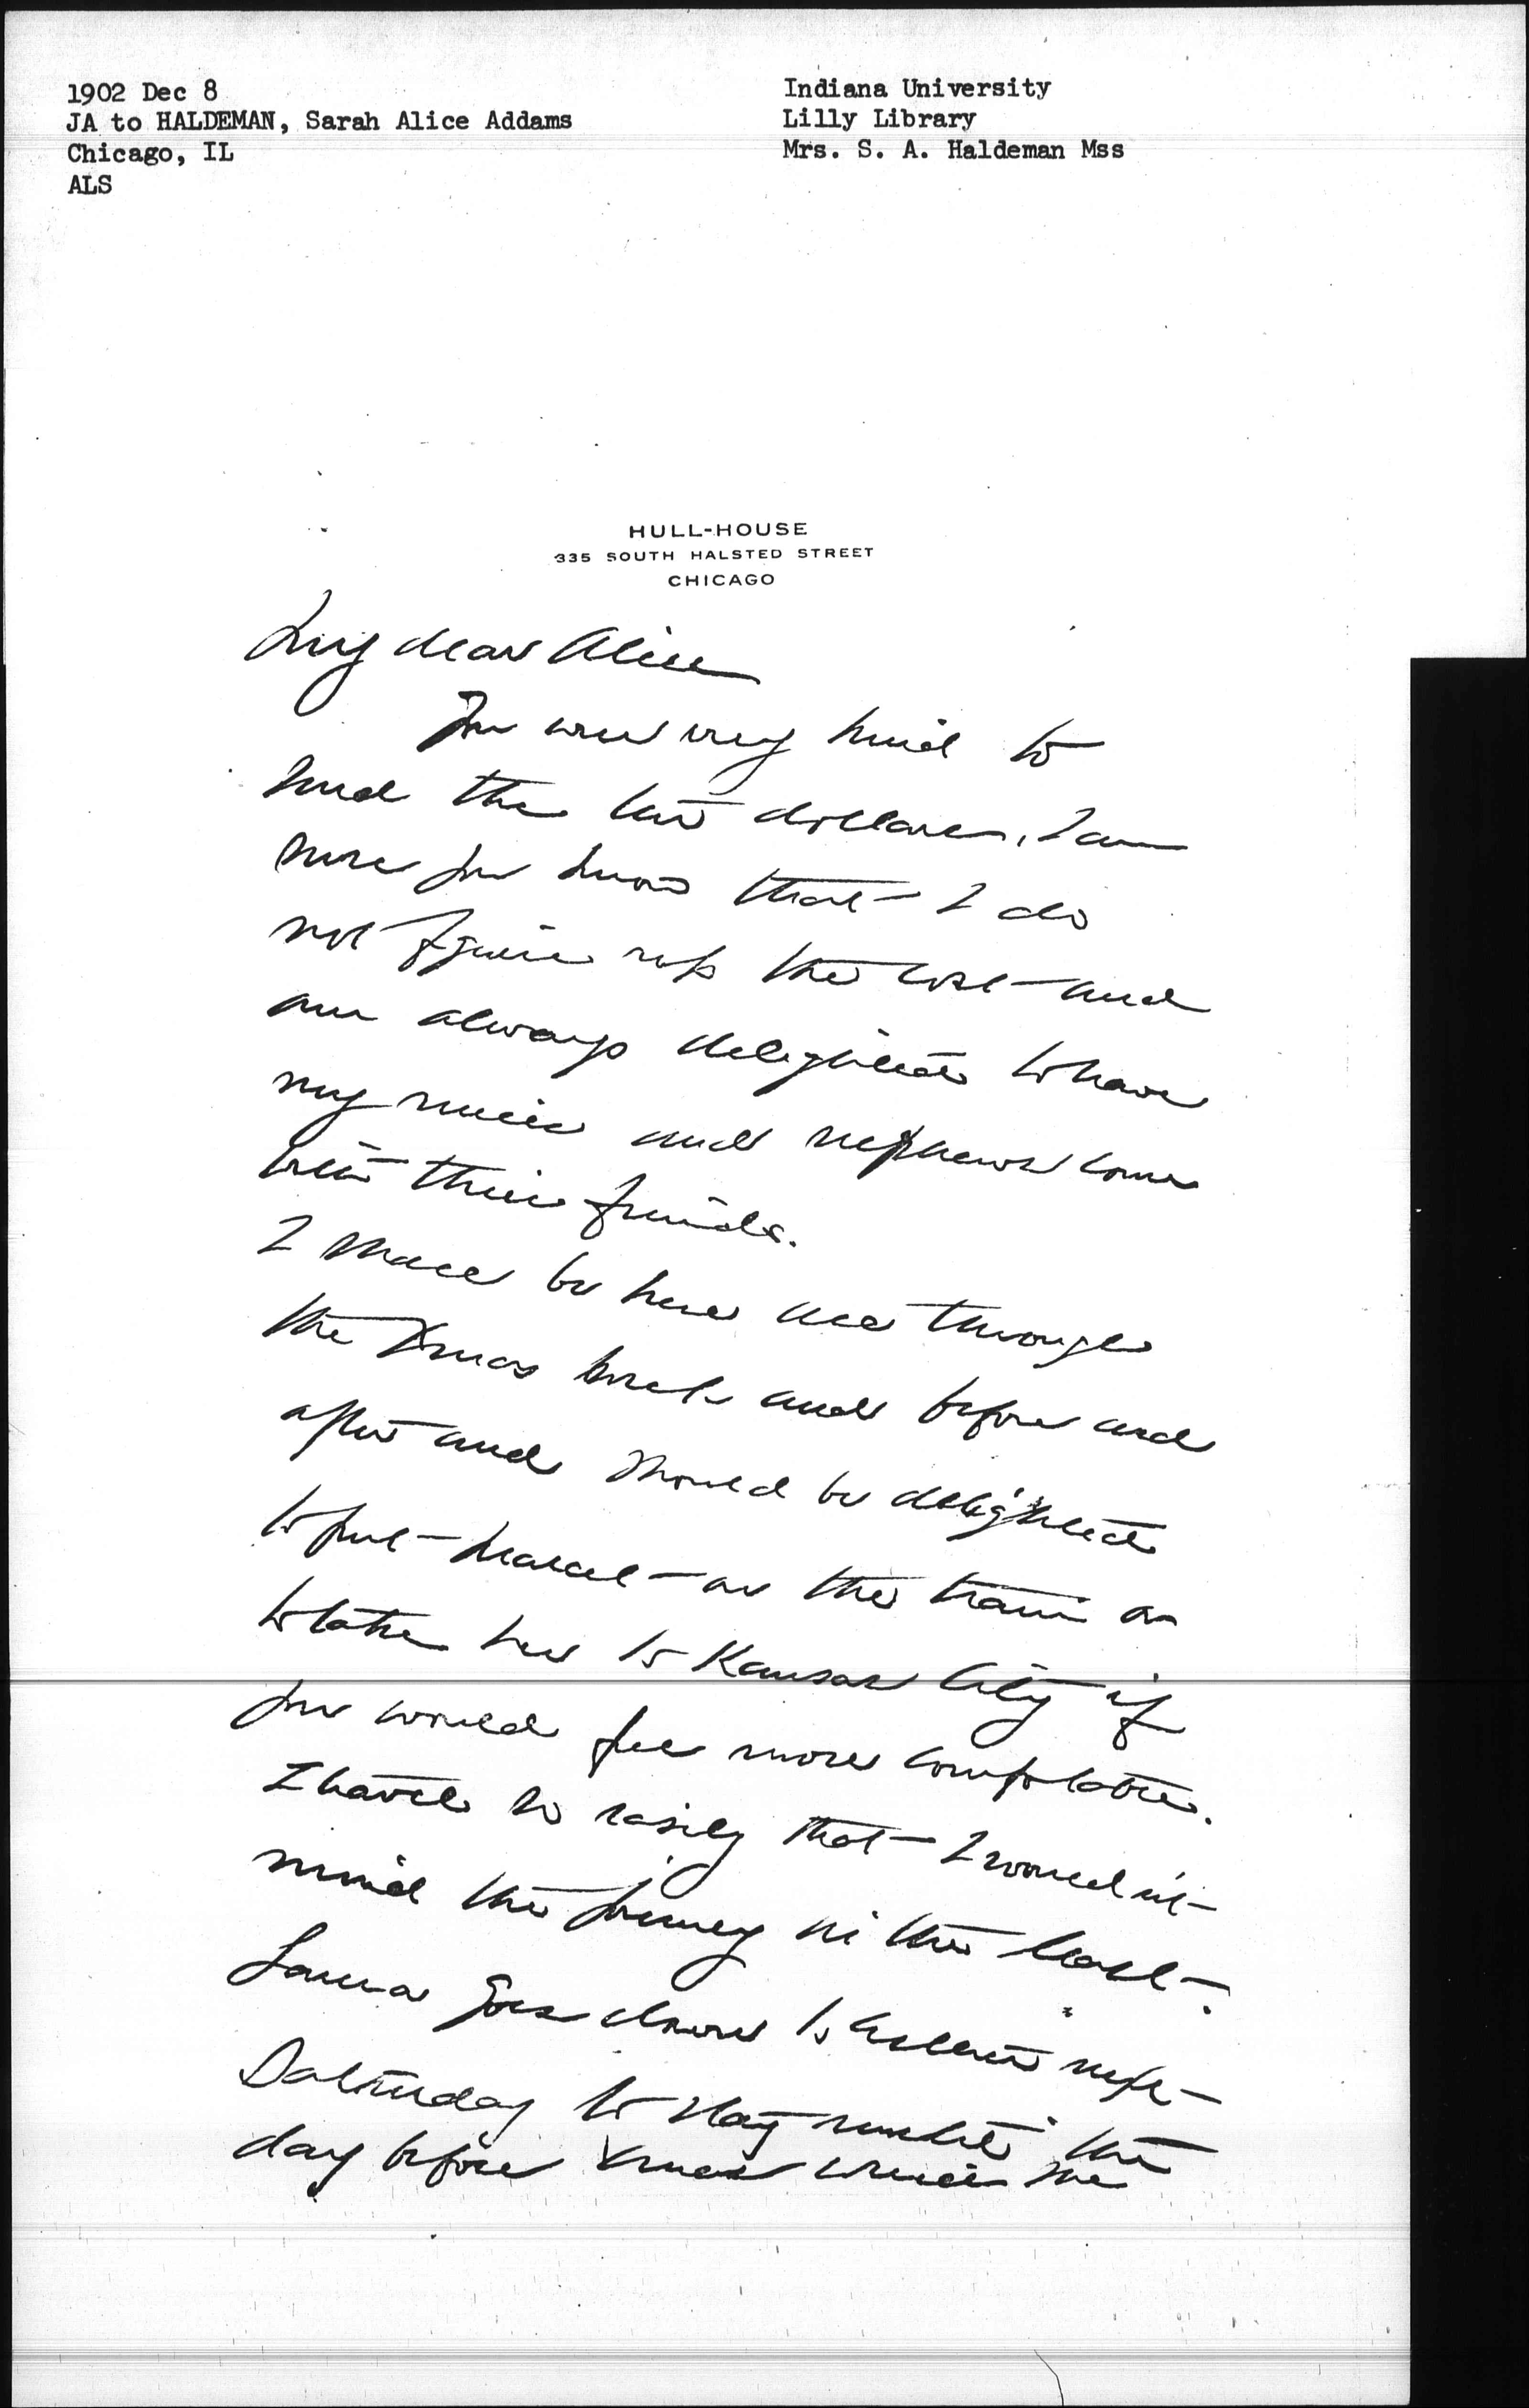 1902 Dec 8
JA to HALDEMAN, Sarah Alice Addams
Chicago, IL
ALS
Indiana University
Lilly Library
Mrs. S. A. Haldeman Mss
HULL-HOUSE
335 SOUTH HALSTED STREET
CHICAGO
My dear Alice
You were very kind to
send the ten dollars, I am
sure you know that I do
not figure up the cost and
am always delighted to have
my niece and nephews come
with their friends.
I shall be here all through
the Xmas week and before and
after and should be delighted
to put Marcet on the train or
to take her to Kansas City if
you would feel more comfortable.
I travel so easily that I would n't
mind the journey in the least.
Laura goes down to next
Saturday to stay until the
day before Xmas when she